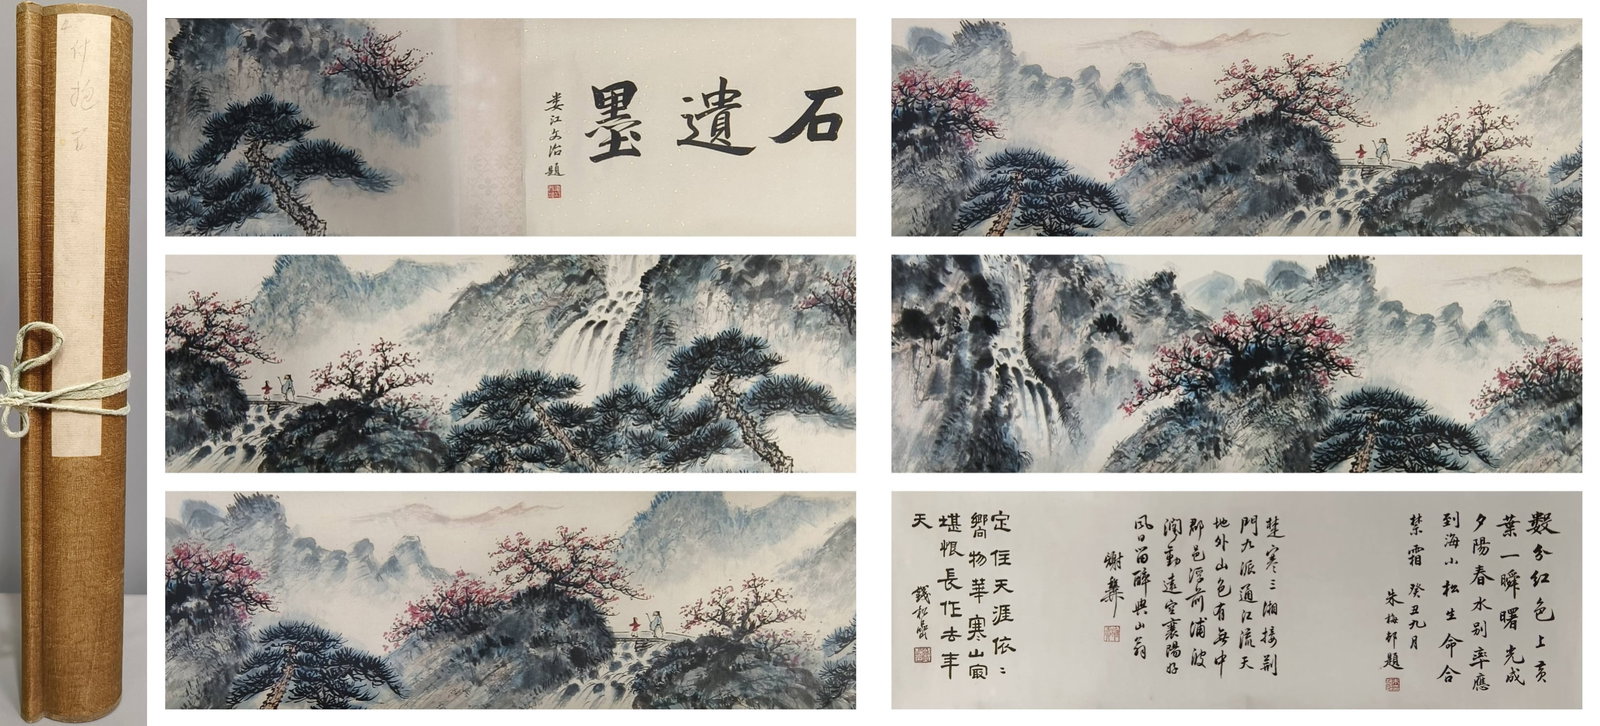 付抱石
石遺墨
娄江文治題
數分红色上黄
葉一瞬曙光成
夕陽春水别率應
到海小松生命合
禁霜 癸丑九月
朱梅邨題
楚寒三湘接荆
門九派通江流天
地外山色有無中
郡邑浮前浦波
瀾動遠空襄陽好
風日留醉與山翁
謝
定住天涯依〻
嚮物華寒山寂
堪恨長作去年
天
錢松喦